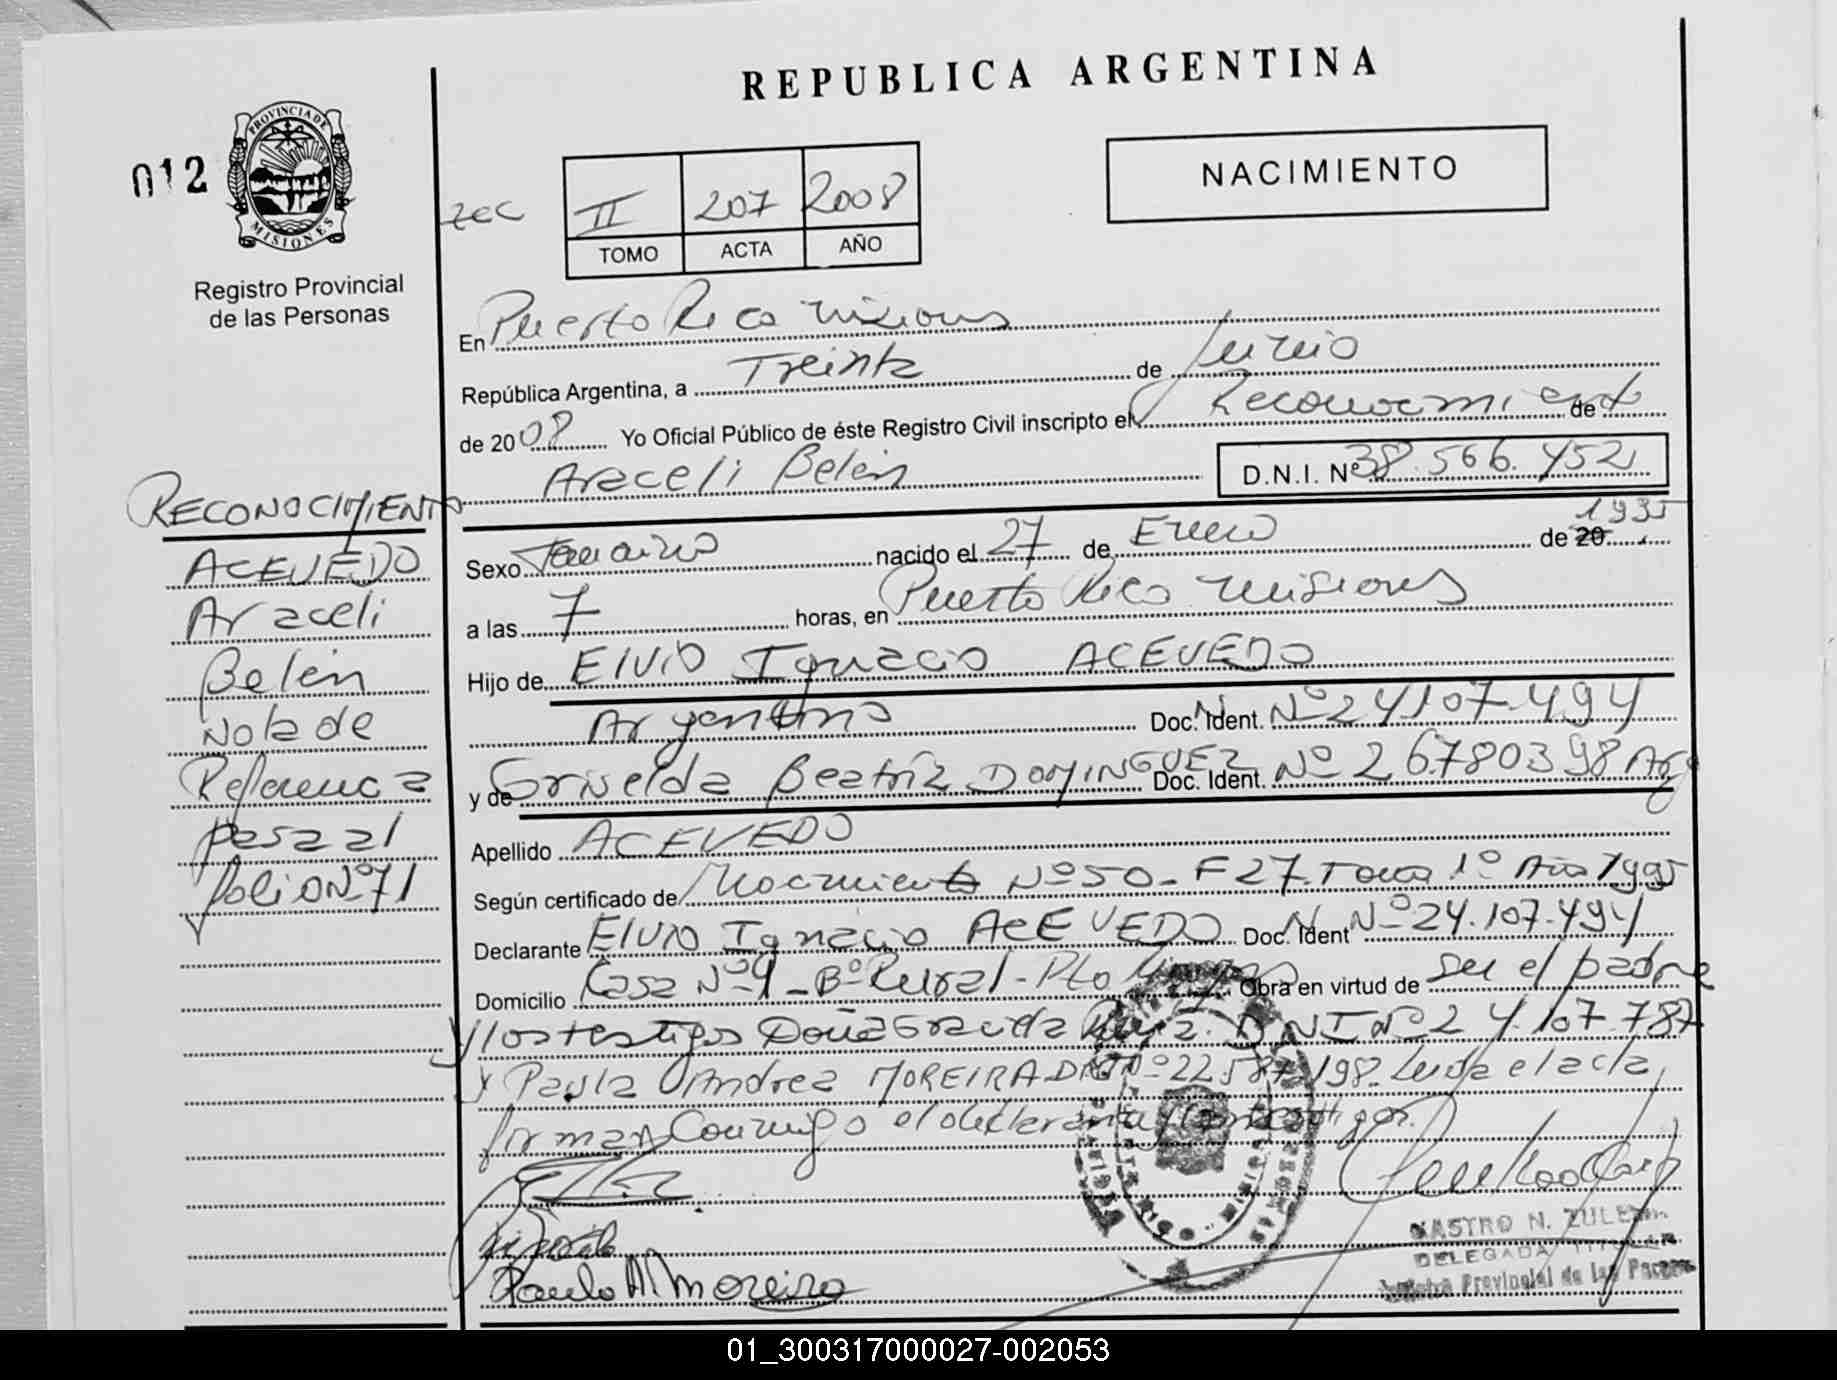 REPUBLICA ARGENTINA
012
PROVINCIA DE
MISIONES
Registro Provincial
de las Personas
II 207 2008
TOMO ACTA AÑO
NACIMIENTO
En Puerto Rico Misiones
República Argentina, a Treinta de Junio
de 2008 Yo Oficial Público de éste Registro Civil inscripto el Reconocimiento de
Araceli Belén D.N.I. Nº 38.566.452
RECONOCIMIENTO
ACEVEDO
Araceli
Belén
Nota de
Referencia
pasa al
folio Nº 71
Sexo Femenino nacido el 27 de Enero de 20 1995
a las 7 horas, en Puerto Rico Misiones
Hijo de Elvio Ignacio ACEVEDO
Argentino Doc. Ident. Nº 24107.494
y de Griselda Beatriz DOMINGUEZ Doc. Ident. Nº 26.780398 Arg
Apellido ACEVEDO
Según certificado de Nacimiento Nº 50 - F 27. Tomo 1º Año 1995
Declarante Elvio Ignacio ACEVEDO Doc. Ident Nº 24.107.494
Domicilio Casa Nº 4 - Bº Rural - Pto Obra en virtud de ser el padre
y los testigos Doña Graciela DNI Nº 24.107.787
y Paula Andrea MOREIRA DNI Nº 22.587.198. Leida el acta,
firman Conmigo el declarante y los testigos.
Paula A. Moreira
CASTRO N.
DELEGADA TITULAR
Registro Provincial de las Personas
01_300317000027-002053